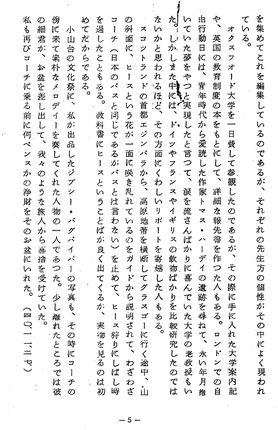 を集めてこれを編集しているのであるが、それぞれの先生方の個性がその中によく現われ
ている。
オクスフォード大学を一日費して参観したのであるが、その際に手に入れた大学案内記
や、英国の教育制度の本をもとにして、詳細な報先書を作つた人もある。ロンドンでの自
由行動日には、青年時代から愛読した作家トマス・ハーデイの遺跡を尋ねて、永い年月抱
いていた夢をやつと実現したと言つて、涙を流さんばかりに喜んでいた大学の老教授もい
た。しかしまた中には、ドイツやフランスやイギリスの飲物ばかりを比較研究したのでは
ないかと思われるほど、その方面にくわしいリポートを寄越した人もある。
スコットランドの首都エジンバラから、高原地帯を横断してグラスゴーに行く途中、山
の斜面に、ヒースという花が一面に咲き乱れているのをガイドから説明されて、わざわざ
コーチ(日本のバスと同じであるがバスとは言わない)を止めて、ヒース狩りにしばし時
を過したこともある。教科書にヒースということばが良く出てくるが、実物を見るのは初
めてだかからである。
小山台の文化祭に、私が出品したジプシー・バグパイパーの写真も、その時にコーチの
傍に来て素朴なメロディーを奏してくれた人物の一人であつた。少し離れたところでは彼
の細君が、お盆を差し出して、我々のような旅人から喜捨を受けていた。
私も再びコーチに乗る前に何ペンスかの浄財をそのお盆にいれた。(四〇・一一・二四)
— 5 —